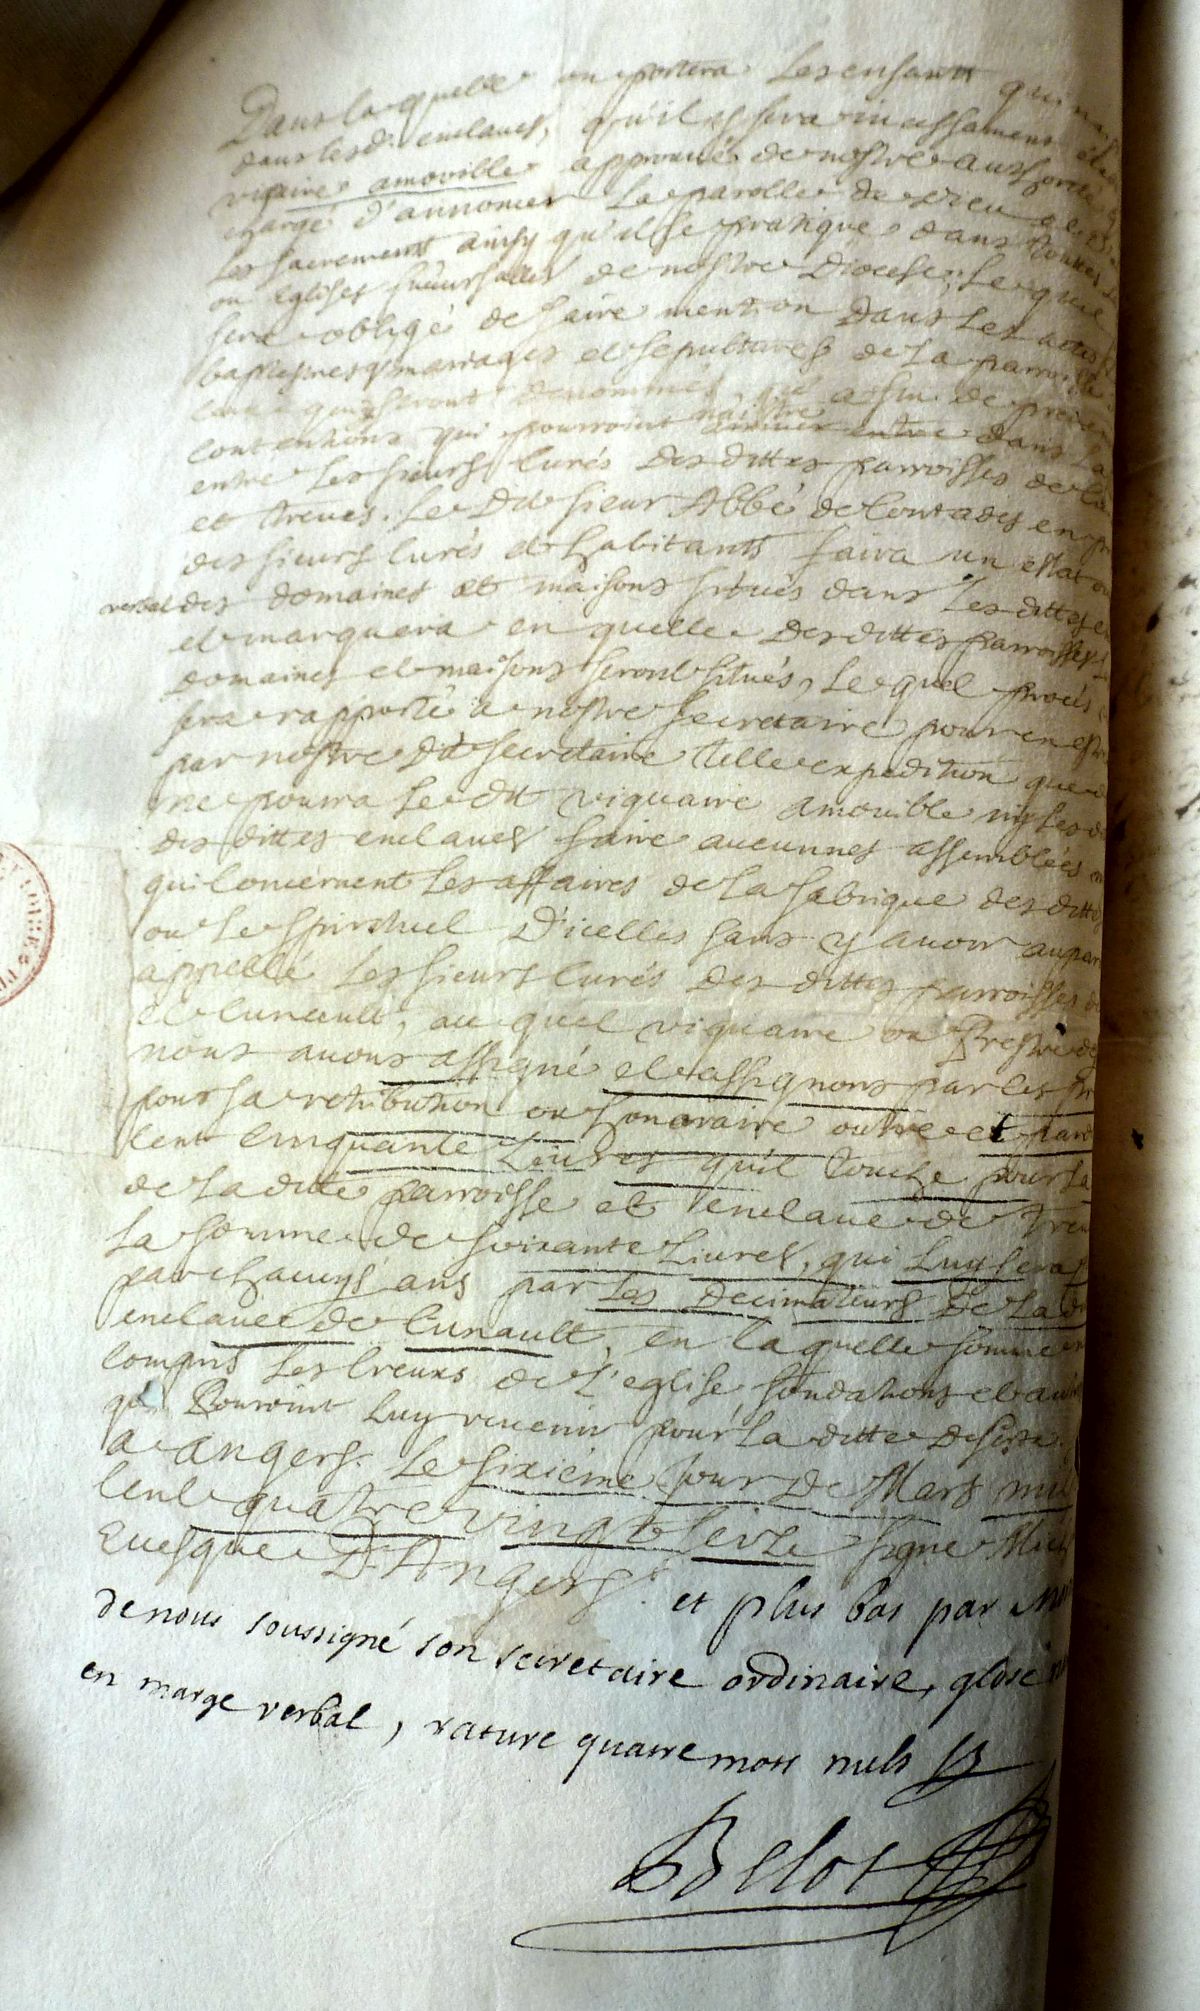 Dans la quelle on portera les enfants qui
dans lesd. enclaves, qu'il y sera incessament
viquaire amoville approuué de nostre authorité
chargé d'annoncer la parolle de Dieu
les sacrements ainsy qu'il se pratique dans toutes
ou Eglises succursalles de nostre Diocese, lequel
sera obligé de faire mention dans les actes
baptesmes mariages et sepultures de la parroisse
seront denommés afin de
contentions qui pourroint naistre arriver entre dans la
entre les sieurs curés des dittes parroisses de
et Treves. Le Dit sieur Abbé de Contades en
des sieurs curés et habitants faira un estat ou
verbal des domaines et maisons situés dans les dittes
et marquera en quelle des dittes parroisses
domaines et maisons seront situés, lequel procés
sera rapporté a nostre secretaire pour en estre
par nostre Dit secretaire telle expedition que
ne poura le dit viquaire amouible ny les
des dittes enclaves faire aucunnes assemblées
qui concernent les affaires de la fabrique des dittes
ou le spirituel D'icelles sans y auoir
appellé les sieurs curés des dittes parroisses
et Cunault, au quel viquaire ou Prestre
nous auons assigné et assignons par les
pour sa retribution ou honoraire outre et
cent cinquante Liures qu'il touche pour la
de la ditte parroisse et enclaue de
la somme de soixante Liures, qui luy sera
par chacuns ans par les Decimateurs de la
enclauee de Cunault, en la quelle somme
compris les creux de l'eglise, fondations et
qui Pouroint luy reuenir pour la ditte deserte.
a Angers. Le sixiéme jour de Mars mil
cent quatre vingt seize signé
Euesque D'Angers. et plus bas par
de nous soussigné son secretaire ordinaire, glose
en marge verbal, rature quatre mots nuls B
Belot